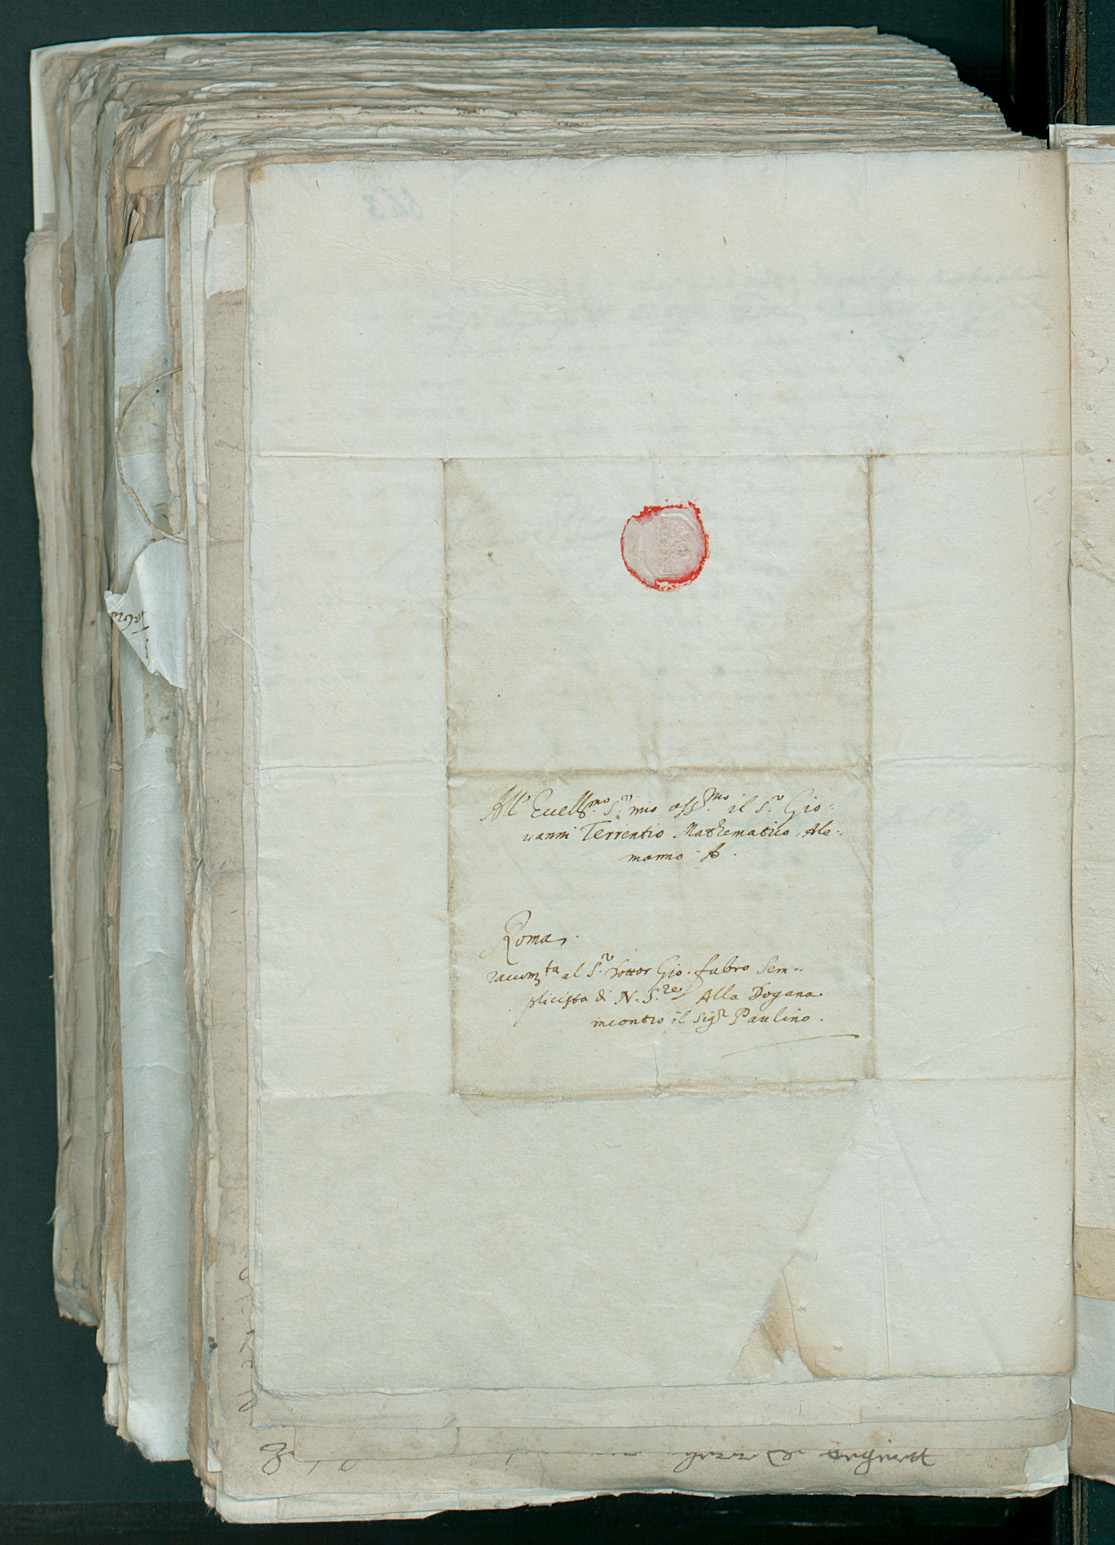 All' Eccell.mo S.r mio oss.mo il S.r Gio-
vanni Terrentio Mathematico Ale-
manno
Roma.
raccom.ta al S.r Dottor Gio. fabro Sem-
plicista di N. S.re Alla Dogana
incontro il Sig.r Paulino.